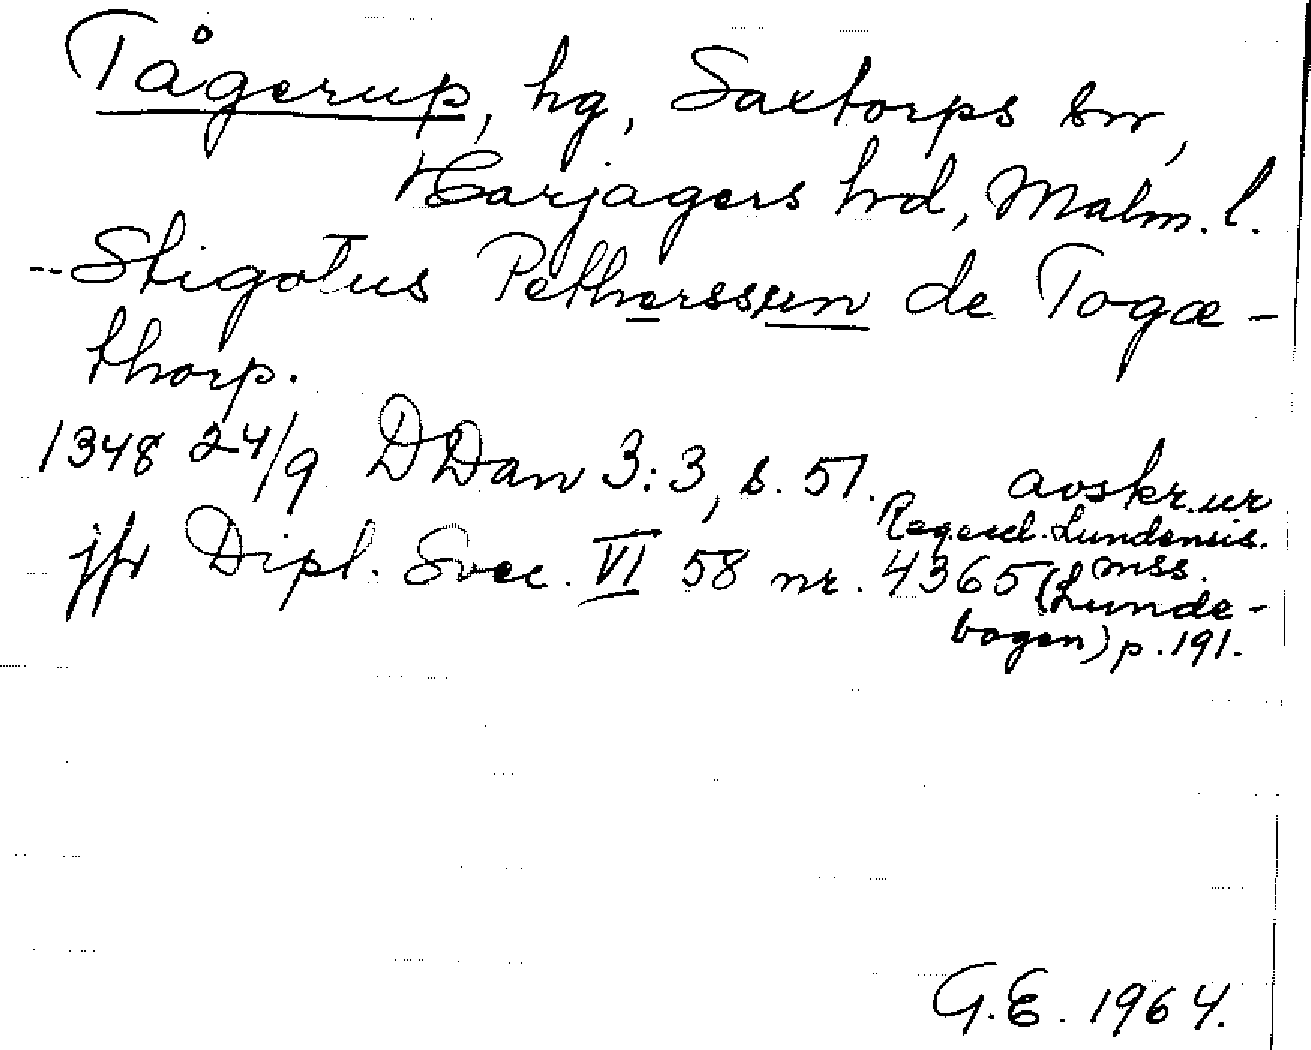 Tågerup, hg, Saxtorps sn,
Harjagers hd, Malm. l.
--Stigotus Petherssun de Togæ-
thorp.
1348 24/9 DDan 3:3, s. 51. avskr. ur
Regest. Lundensis.
jfr Dipl. Svec. VI 58 nr. 4365 mss.
(Lunde-
bogen) p. 191.
G.E. 1964.